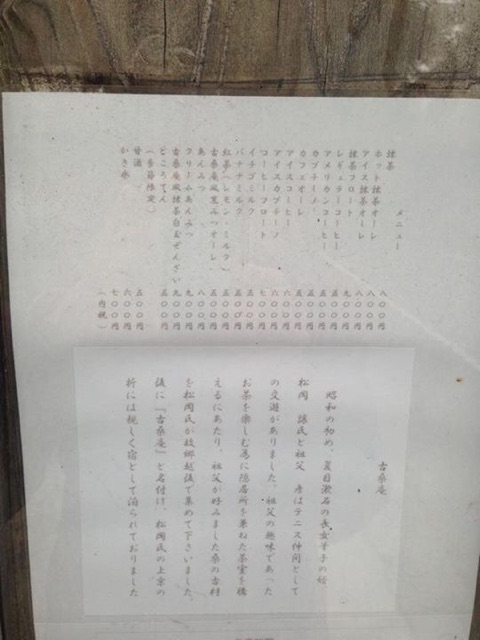 メニュー
抹茶 八〇〇円
ホット抹茶オーレ 八〇〇円
アイス抹茶オーレ 八〇〇円
抹茶フロート 九〇〇円
レギュラーコーヒー 五〇〇円
アメリカンコーヒー 五〇〇円
カプチーノ 五〇〇円
カフェオーレ 五〇〇円
アイスコーヒー 六〇〇円
アイスカプチーノ 六〇〇円
コーヒーフロート 七〇〇円
イチゴミルク 五〇〇円
バナナミルク 五〇〇円
紅茶(レモン・ミルク) 五〇〇円
古桑庵風黒みつオーレ 五〇〇円
あんみつ 八〇〇円
クリームあんみつ 九〇〇円
古桑庵風抹茶白玉ぜんざい 九〇〇円
ところてん 五〇〇円
(季節限定)
甘酒 五〇〇円
かき氷 六〇〇円
七〇〇円
(内税)
古桑庵
昭和の初め、夏目漱石の長女筆子の婿
松岡 譲氏と祖父 彦はテニス仲間として
の交遊がありました。祖父の趣味であった
お茶を楽しむ為に隠居所を兼ねた茶室を構
えるにあたり、祖父が好みました桑の古材
を松岡氏が故郷越後で集めて下さいました。
後に『古桑庵』と名付け、松岡氏の上京の
折には親しく宿として泊られておりました